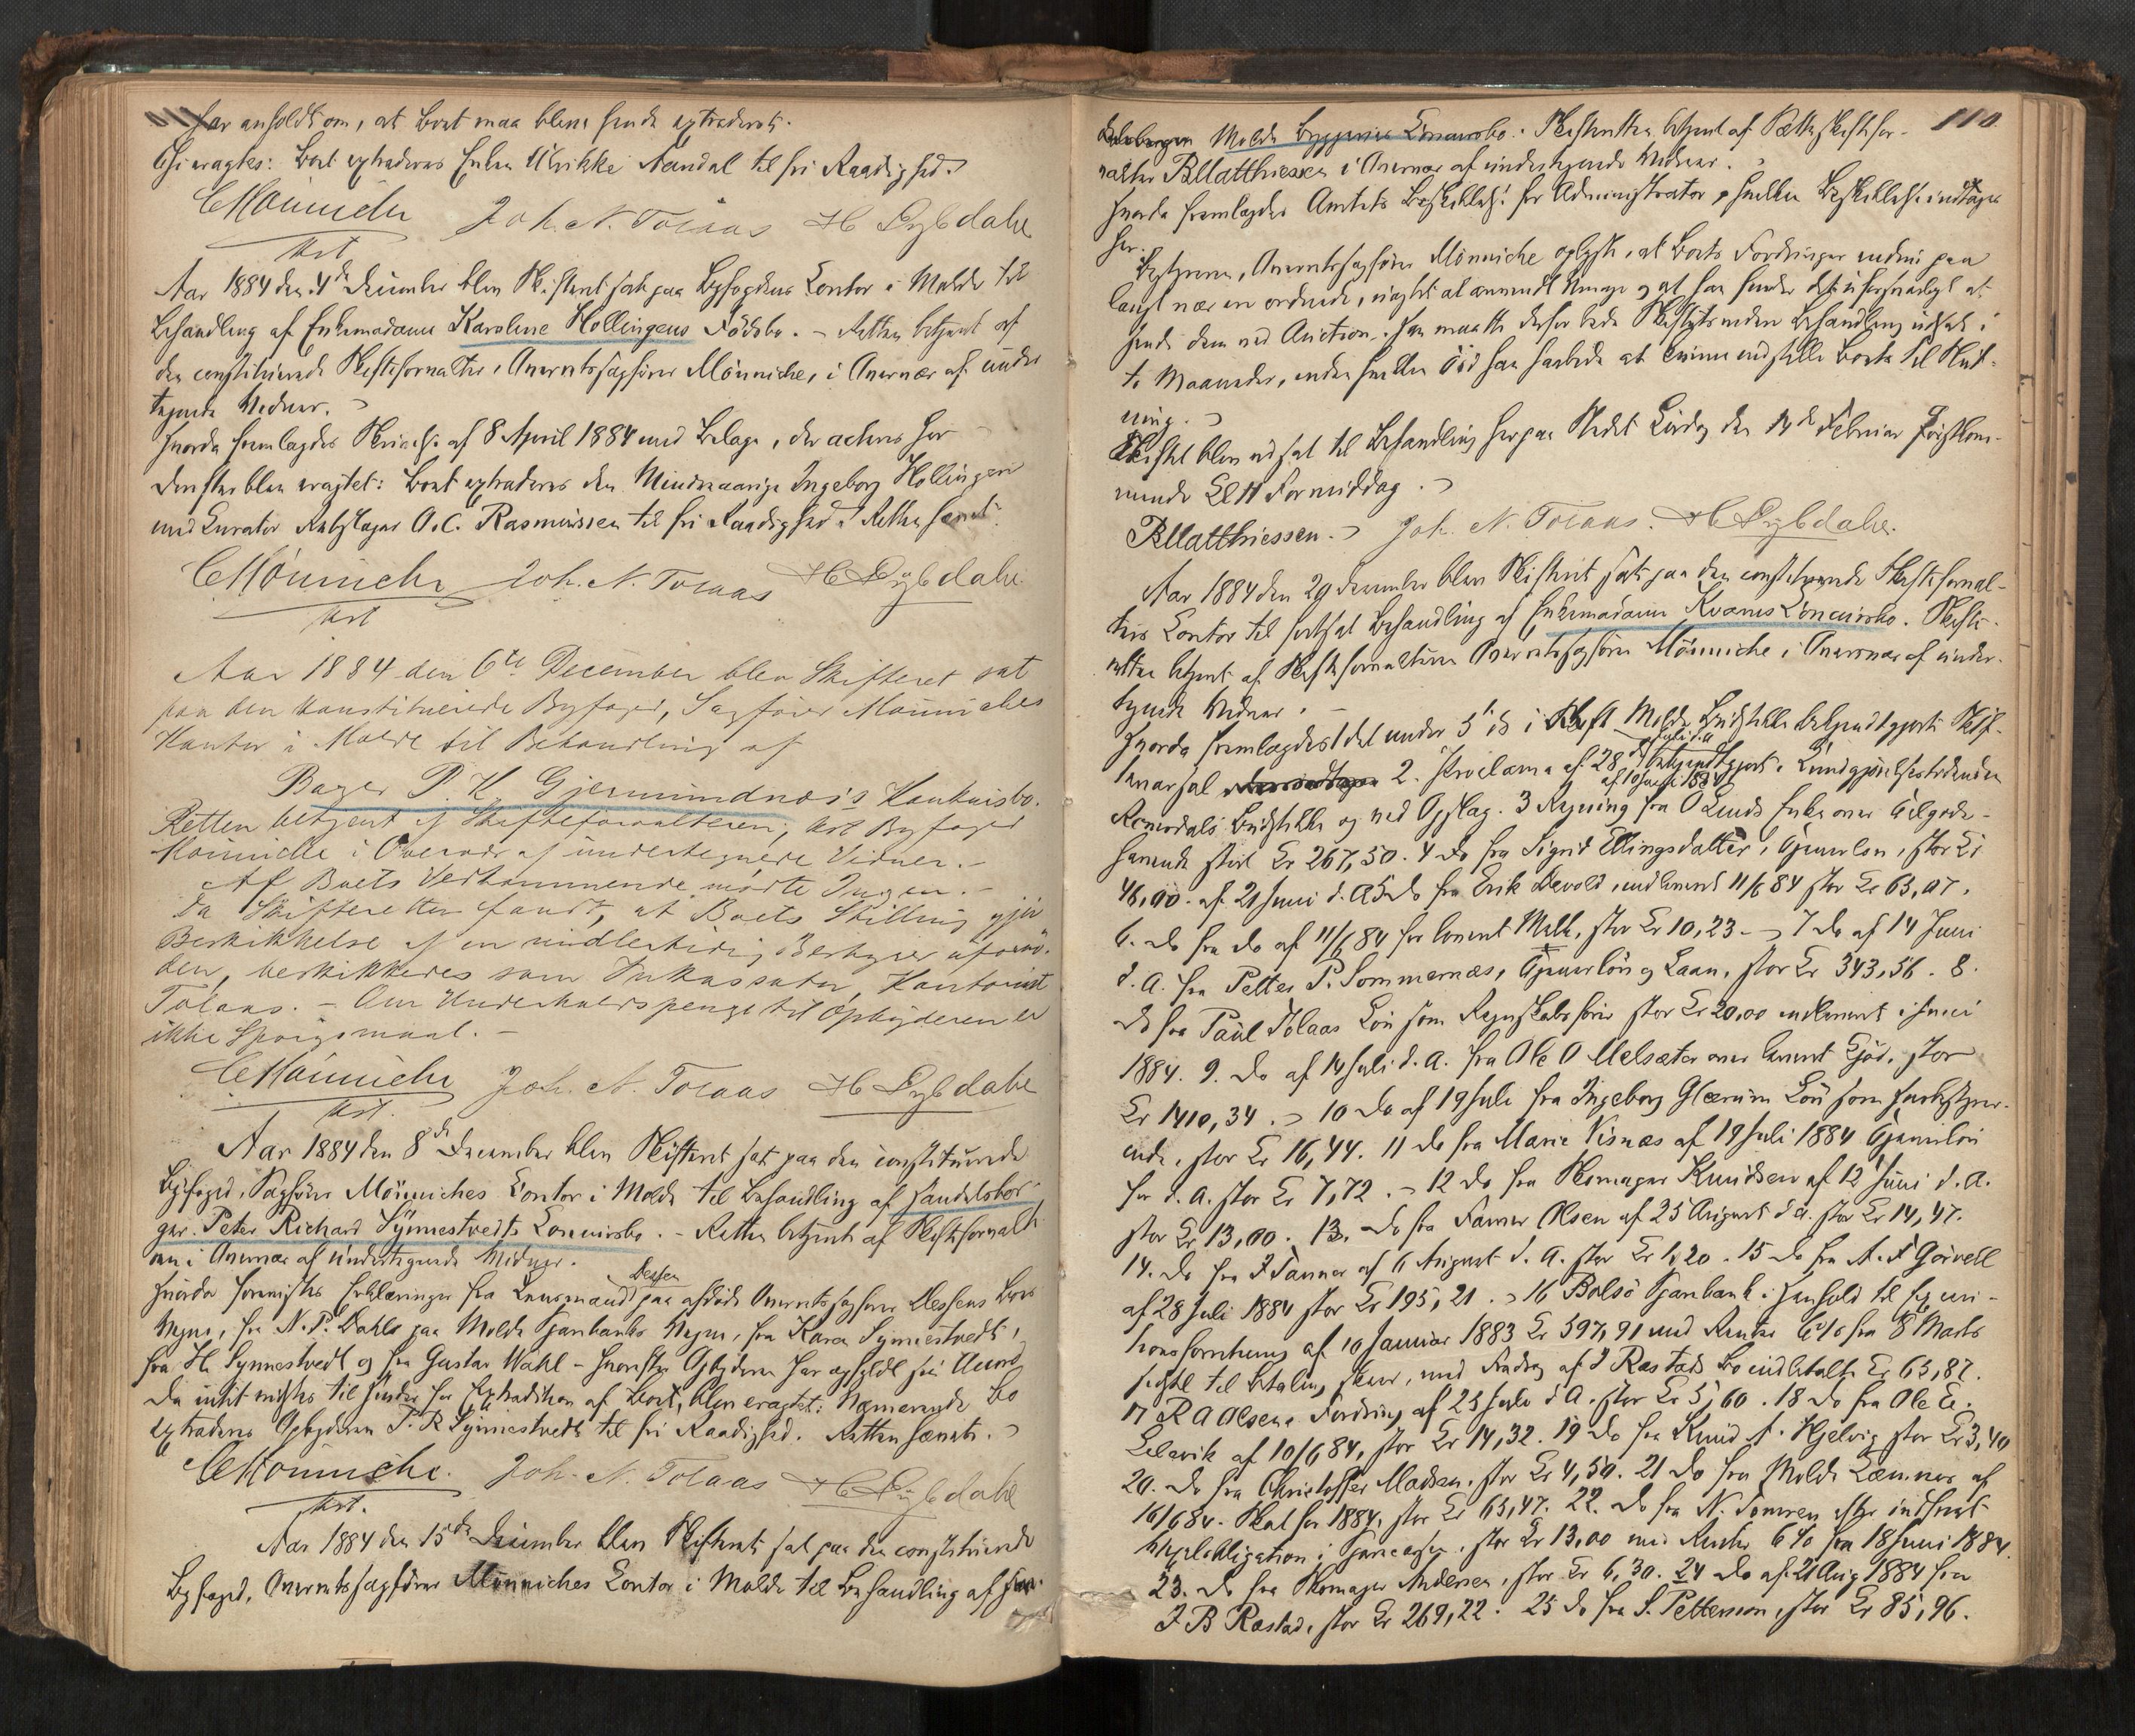 har anholdt om, at Boet maa blive hende extraderet.
Thi eragtes: Boet extraderes Enken Ulrikke Aandal til fri Raadighed.
CMönniche Joh. N. Tolaas H Dybdahl
kst
Aar 1884 den 4de December blev Skifteret sat paa Byfogdens Contor i Molde til
Behandling af Enkemadame Karoline Hollingens Dödsbo. – Retten betjent af
den constituerede Skifteforvalter, Overretssagförer Mönniche, i Overvær af under-
tegnede Vidner.
Hvorda fremlagdes Skrivelse af 8 April 1884 med Bilage, der acteres her
Derefter blev eragtet: Boet extraderes den Mindreaarige Ingeborg Hollingen
med Curator Rebslager O. C. Rasmussen til fri Raadighed. Retten hævet.
CMönniche Joh. N. Tolaas H Dybdahl
kst
Aar 1884 den 6te December blev Skifteret sat
paa den konstituerede Byfoged, Sagförer Mönniches
Kontor i Molde til Behandling af
Bager P. K. Gjermundnæs's Konkursbo.
Retten betjent af Skifteforvalteren, kst Byfoged
Mönniche i Overvær af undertegnede Vidner. –
Af Boets Vedkommende mödte Ingen. –
Da Skifteretten fandt, at Boets Stilling gjör
Beskikkelse af en midlertidig Bestyrer uforn.
den, beskikkedes som Inkassator, Kontorist
Tolaas. – Om Underholdspenge til Opbyderen er
ikke Spörgsmaal. –
CMönniche Joh. N. Tolaas H Dybdahl
kst.
Aar 1884 den 8de December blev Skifteret sat paa den constituerede
Byfoged, Sagförer Mönniches Contor i Molde til Behandling af Handelsbor-
ger Peter Richard Synnestvedts Concursbo. – Retten betjent af Skifteforvalt
en i Overvær af undertegnede Vidner.
Hvorda forevistes Erklæringer fra Lensmand Dessen paa afdöde Overretssagförer Dessens Boes
Vegne, fra N. P. Dahls paa Molde Sparebanks Vegne, fra Karen Synnestvedt,
fra H. Synnestvedt og fra Gustav Wahl – hvorefter Opbyderen har opfyldt sin Accord
Da intet vistes til Hinder for Extradition af Boet, blev eragtet: Nærværende Bo
extraderes Opbyderen P. R Synnestvedt til fri Raadighed. Retten hævet.
CMönniche. Joh. N. Tolaas H Dybdahl
kst.
Aar 1884 den 15de December blev Skifteret sat paa den constituerede
Byfoged, Overretssagförer Mönniches Contor i Molde til Behandling af
110
Molde Byggeries Concursbo. Skifteretten betjent af Sætteskiftefor-
valter BMatthiessen i Overvær af undertegnede Vidner.
Hvorda fremlagdes Amtets Beskikkelse for Administrator, hvilken Beskikkelse indtages
her.
Bestyreren, Overretssagförer Mönniche oplyste, at Boets Fordringer endnu paa
langt nær ere ordnede, uagtet al anvendt Umage og at han finder det uforsvarligt at
sende dem ved Auction. Han maatte derfor bede Skiftets videre Behandling udsat i
to Maaneder, inden hvilken Tid han haabede at kunne indstille Boet til Slut-
ning.
Skiftet blev udsat til Behandling her paa Stedet Lördag den 14de Februar förstkom-
mende Kl 11 Formiddag.
BMatthiessen. Joh. N. Tolaas. H Dybdahl.
Aar 1884 den 29 December blev Skifteret sat paa den constituerede Skifteforval-
ters Contor til fortsat Behandling af Enkemadame Kvams Concursbo. Skifte-
retten betjent af Skifteforvalteren Overretssagförer Mönniche i Overvær af under-
tegnede Vidner. –
Hvorda fremlagdes 1 det under 5te ds i Molde Budstikke bekjendtgjorte Skif-
tevarsel 2. Proclama af 28 Juli d. A. bekjendtgjort i Kundgjörelsestidenden
af 10 Juni 1884
Romsdals Budstikke og ved Opslag. 3 Regning fra O Lunds Enke over Tilgode-
havende stort Kr 267,50. 4 Do fra Sigrid Ellingsdatter, Tjenerlön, stor Kr
48,00. af 21 Juni d. A 5 Do fra Erik Devold, indleveret 11/6 84 stor Kr 63,07.
6. Do fra do af 11/6 84 for leveret Melk, stor Kr 10,23. 7 Do af 14 Juni
d. A. fra Petter P. Sommernæs, Tjenerlön og Laan, stor Kr 343,56. 8.
Do fra Paul Tolaas Lön som Regnskabsförer stor Kr 20,00 indleveret i Juni
1884. 9. Do af 14 Juli d. A. fra Ole O Melsæter over leveret Kjöd, stor
Kr 1410,34. 10 Do af 19 Juli fra Ingeborg Glærum Lön som Husbestyrer-
inde, stor Kr 16,44. 11 Do fra Marie Visnæs af 19 Juli 1884 Tjenerlön
for d. A. stor Kr 7,72. 12 Do fra Skomager Knudsen af 12 Juni d. A.
stor Kr 13,00. 13. Do fra Farver Olsen af 25 August d A. stor Kr 14,47.
14. Do fra J Tanner af 6 August d. A. stor Kr 1,20. 15 Do fra A. F Görvell
af 28 Juli 1884 stor Kr 195,21. 16 Bolsö Sparebank i Henhold til
af 10 Januar 1883 Kr 597,91 med Renter 6% fra 8 Marts
til Betaling skeer, med Fradrag af J Rastads Bo indbetalte Kr 65,87.
17 R A Olsens Fordring af 23 Juli d A. stor Kr 5,60. 18 Do fra Ole E.
Eelevik af 10/6 84, stor Kr 14,32. 19 Do fra Knud A. Hjelvig stor Kr 3,40
20. Do fra Christoffer Madsen, stor Kr 4,50. 21 Do fra Molde Kæmner af
16/6 84. Skat for 1884, stor Kr 63,47. 22. Do fra N. Tomren efter indfriet
obligation i Sparecasse, stor Kr 13,00 med Renter 6% fra 18 Juni 1884.
23. Do fra Skomager Andersen, stor Kr 6,30. 24 Do af 21 Aug 1884 fra
J B Rastad, stor Kr 269,22. 25 Do fra S. Petterson, stor Kr 85,96.